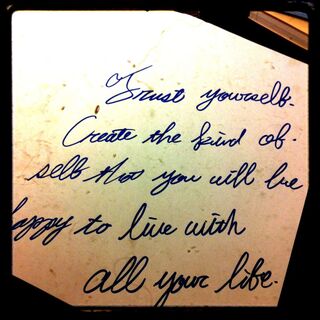 Trust yourself.
Create the kind of
self that you will be
happy to live with
all your life.